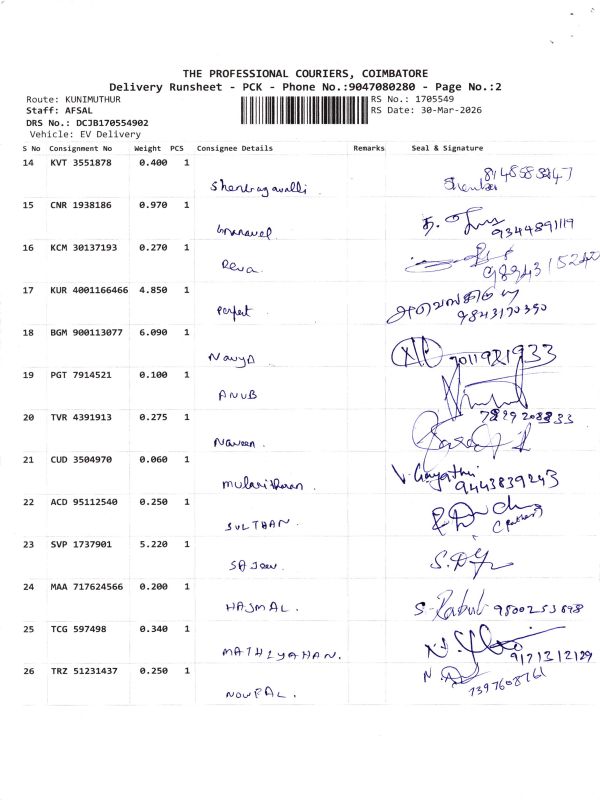 THE PROFESSIONAL COURIERS, COIMBATORE
Delivery Runsheet - PCK - Phone No.:9047080280 - Page No.:2
Route: KUNIMUTHUR RS No.: 1705549
Staff: AFSAL RS Date: 30-Mar-2026
DRS No.: DCJB170554902
Vehicle: EV Delivery
S No Consignment No Weight PCS Consignee Details Remarks Seal & Signature
14 KVT 3551878 0.400 1
15 CNR 1938186 0.970 1
9344891119
16 KCM 30137193 0.270 1
Reva.
17 KUR 4001166466 4.850 1
Perfect
9843170390
18 BGM 900113077 6.090 1
Navya 7011921933
19 PGT 7914521 0.100 1
ANUB
20 TVR 4391913 0.275 1
Naveen.
21 CUD 3504970 0.060 1 V. Gayathri
9443839243
22 ACD 95112540 0.250 1
SULTHAN.
23 SVP 1737901 5.220 1
24 MAA 717624566 0.200 1
HAJMAL.
25 TCG 597498 0.340 1
MATHIYAHAN.
26 TRZ 51231437 0.250 1
NOUFAL.